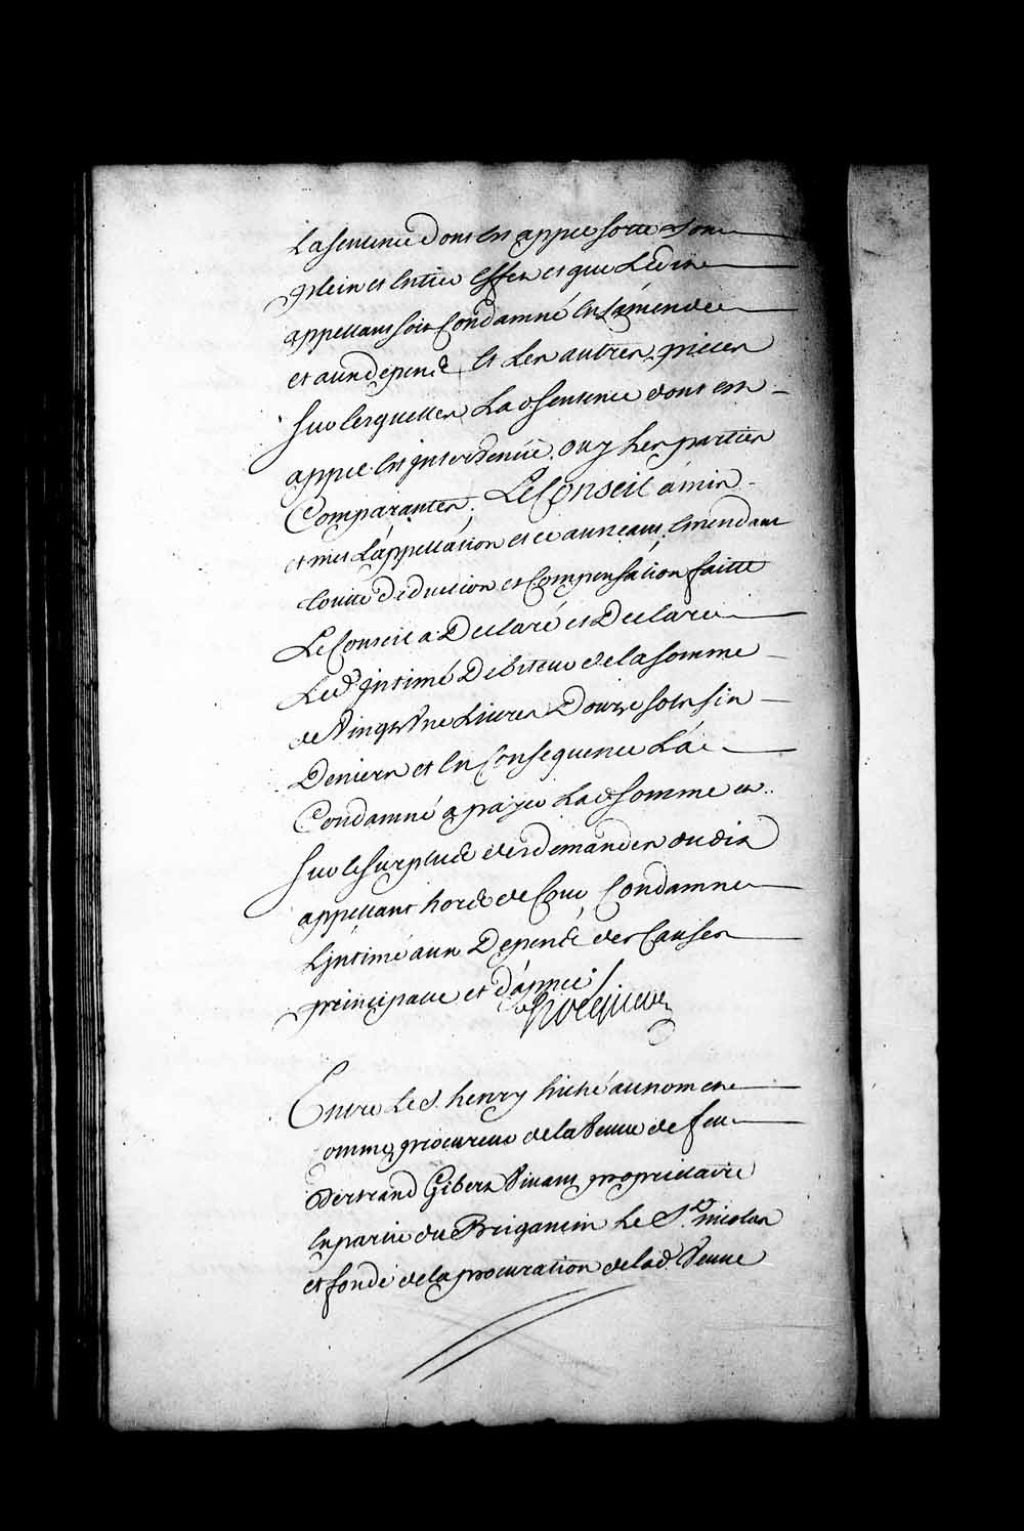 La sentence dont est appel sorte son
plein et entier effet et que Ledit
appellant soit Condamné En L'amende
et aux depens, Et Les autres pieces
sur lesquelles Lad sentence dont est
appel Est intervenüe. ouy Les parties
Comparantes. Le Conseil a mis
et met L'appellation et ce au neant, Emendant
toutte deduction et Compensation faitte
Le Conseil a Declaré et Declare
Led intimé Debiteur de la somme
de Vingt Une Livres Douze sols six
Deniers et En Consequence L'a
Condamné a payer Lad somme et
sur le surplus des demandes dudit
appellant hors de Cour, Condamne
L'intimé aux Depens des Causes
principalle et d'appel
hocquart
Entre Le S. henry hiché au nom et
Comme procureur de la Veuve de feu
Bertrand Gibert Vivant proprietaire
En partie du Brigantin Le St. nicolas
et fondé de la procuration de lad Veuve